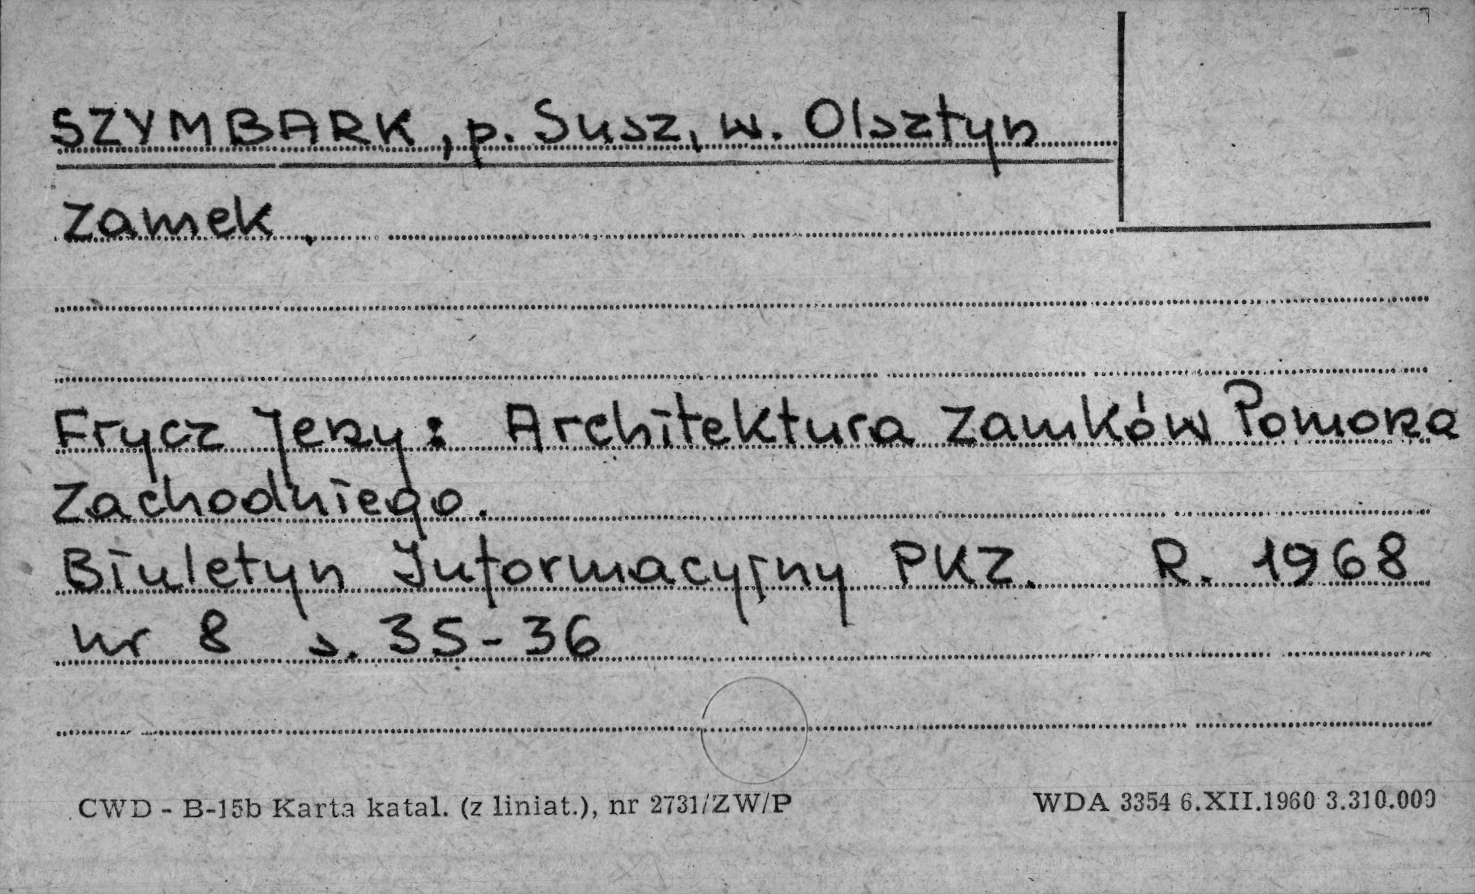 SZYMBARK, p. Susz, w. Olsztyn
Zamek.
Frycz Jerzy: Architektura zamków Pomorza
Zachodniego.
Biuletyn Informacyjny PKZ. R. 1968
nr 8 s. 35-36
CWD - B-15b Karta katal. (z liniat.), nr 2731/ZW/P
WDA 3354 6.XII.1960 3.310.000